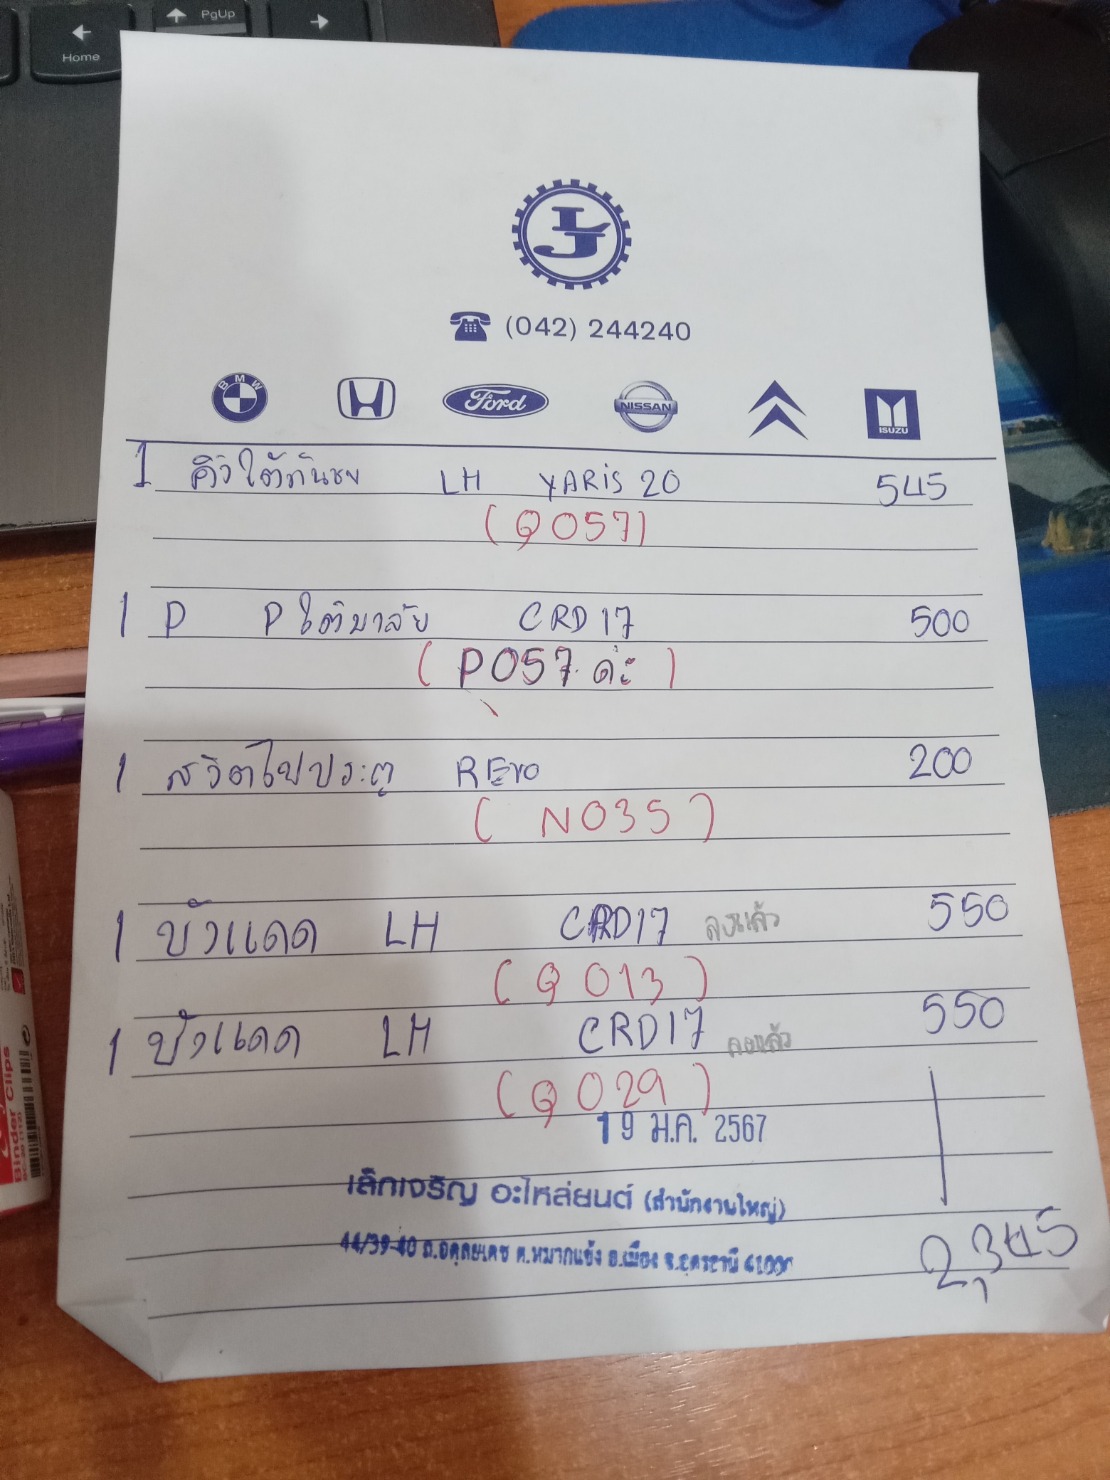 PgUp
Home
LJ
(042) 244240
BMW
Ford
NISSAN
ISUZU
1 คิ้วใต้กันชน LH YARIS 20 545
(Q057)
1 P Pใต้มาลัย CRD 17 500
(P057 ค่ะ)
1 สวิตไฟประตู REvo 200
(N035)
1 บังแดด LH CRD17 ลงแล้ว 550
(Q013)
1 บังแดด LH CRD17 ลงแล้ว 550
(Q029)
19 ม.ค. 2567
เลิกเจริญ อะไหล่ยนต์ (สำนักงานใหญ่)
44/39-40 ถ.อดุลยเดช ต.หมากแข้ง อ.เมือง จ.อุดรธานี 41000
2,345
Binder Clips